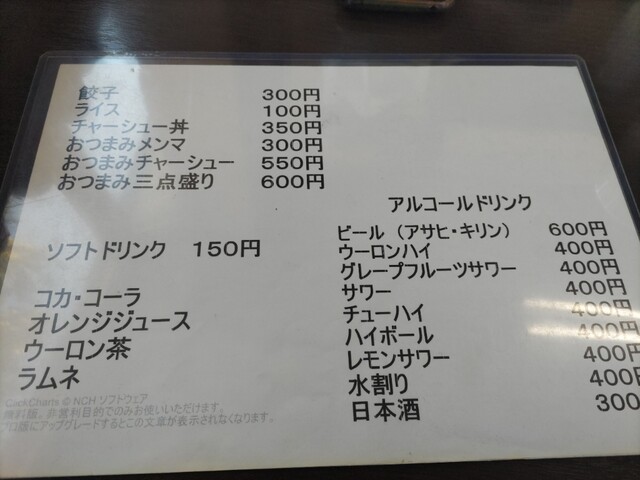 餃子 300円
ライス 100円
チャーシュー丼 350円
おつまみメンマ 300円
おつまみチャーシュー 550円
おつまみ三点盛り 600円
ソフトドリンク 150円
コカ・コーラ
オレンジジュース
ウーロン茶
ラムネ
アルコールドリンク
ビール（アサヒ・キリン） 600円
ウーロンハイ 400円
グレープフルーツサワー 400円
サワー 400円
チューハイ 400円
ハイボール 400円
レモンサワー 400円
水割り 400円
日本酒 300
ClickCharts © NCH ソフトウェア
無料版。非営利目的でのみお使いいただけます。
プロ版にアップグレードするとこの文章が表示されなくなります。